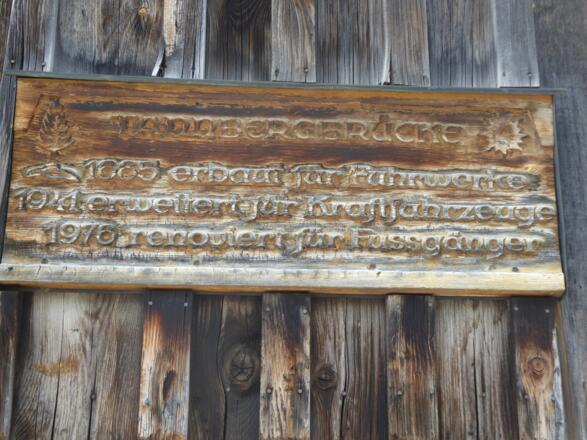 TANNBERGBRÜCKE
1665 erbaut für Fuhrwerke
1921 erweitert für Kraftfahrzeuge
1976 renoviert für Fussgänger